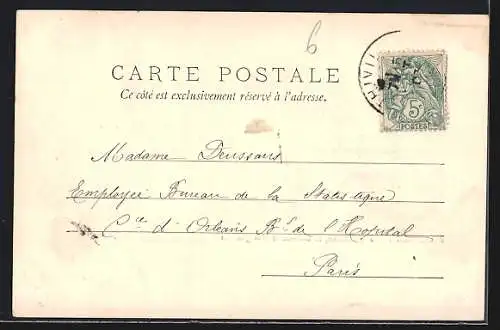 6
CARTE POSTALE
Ce côté est exclusivement réservé à l'adresse.
5
POSTES
Madame
Employée Bureau de la Statistique
Cie d'Orléans Bd de l'Hopital
Paris